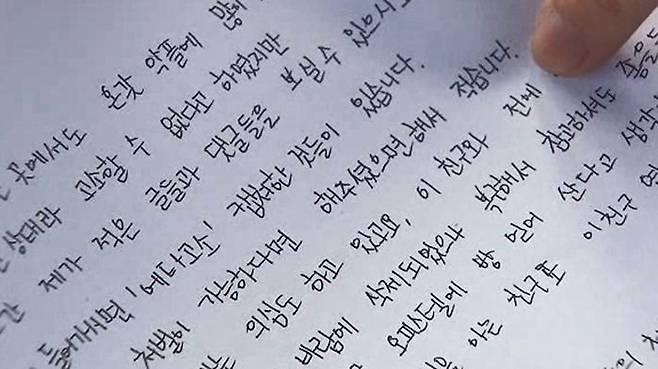 온갖 악플에 많이
곳에서도 고소할 수 없다고 하였지만
상태라 제가 적은 글들과 댓글들을 보실 수 있으시
들어가시면 '예다고소' 캡쳐한 것들이 있습니다.
처벌이 가능하다면 해주셨으면 해서 적습니다.
의심도 하고 있고요, 이 친구와 전에
바람에 삭제되었으나 복구해서 참고하셔도 좋을
오피스텔에 방 얻어 산다고 생각
아는 친구포 이친구 연